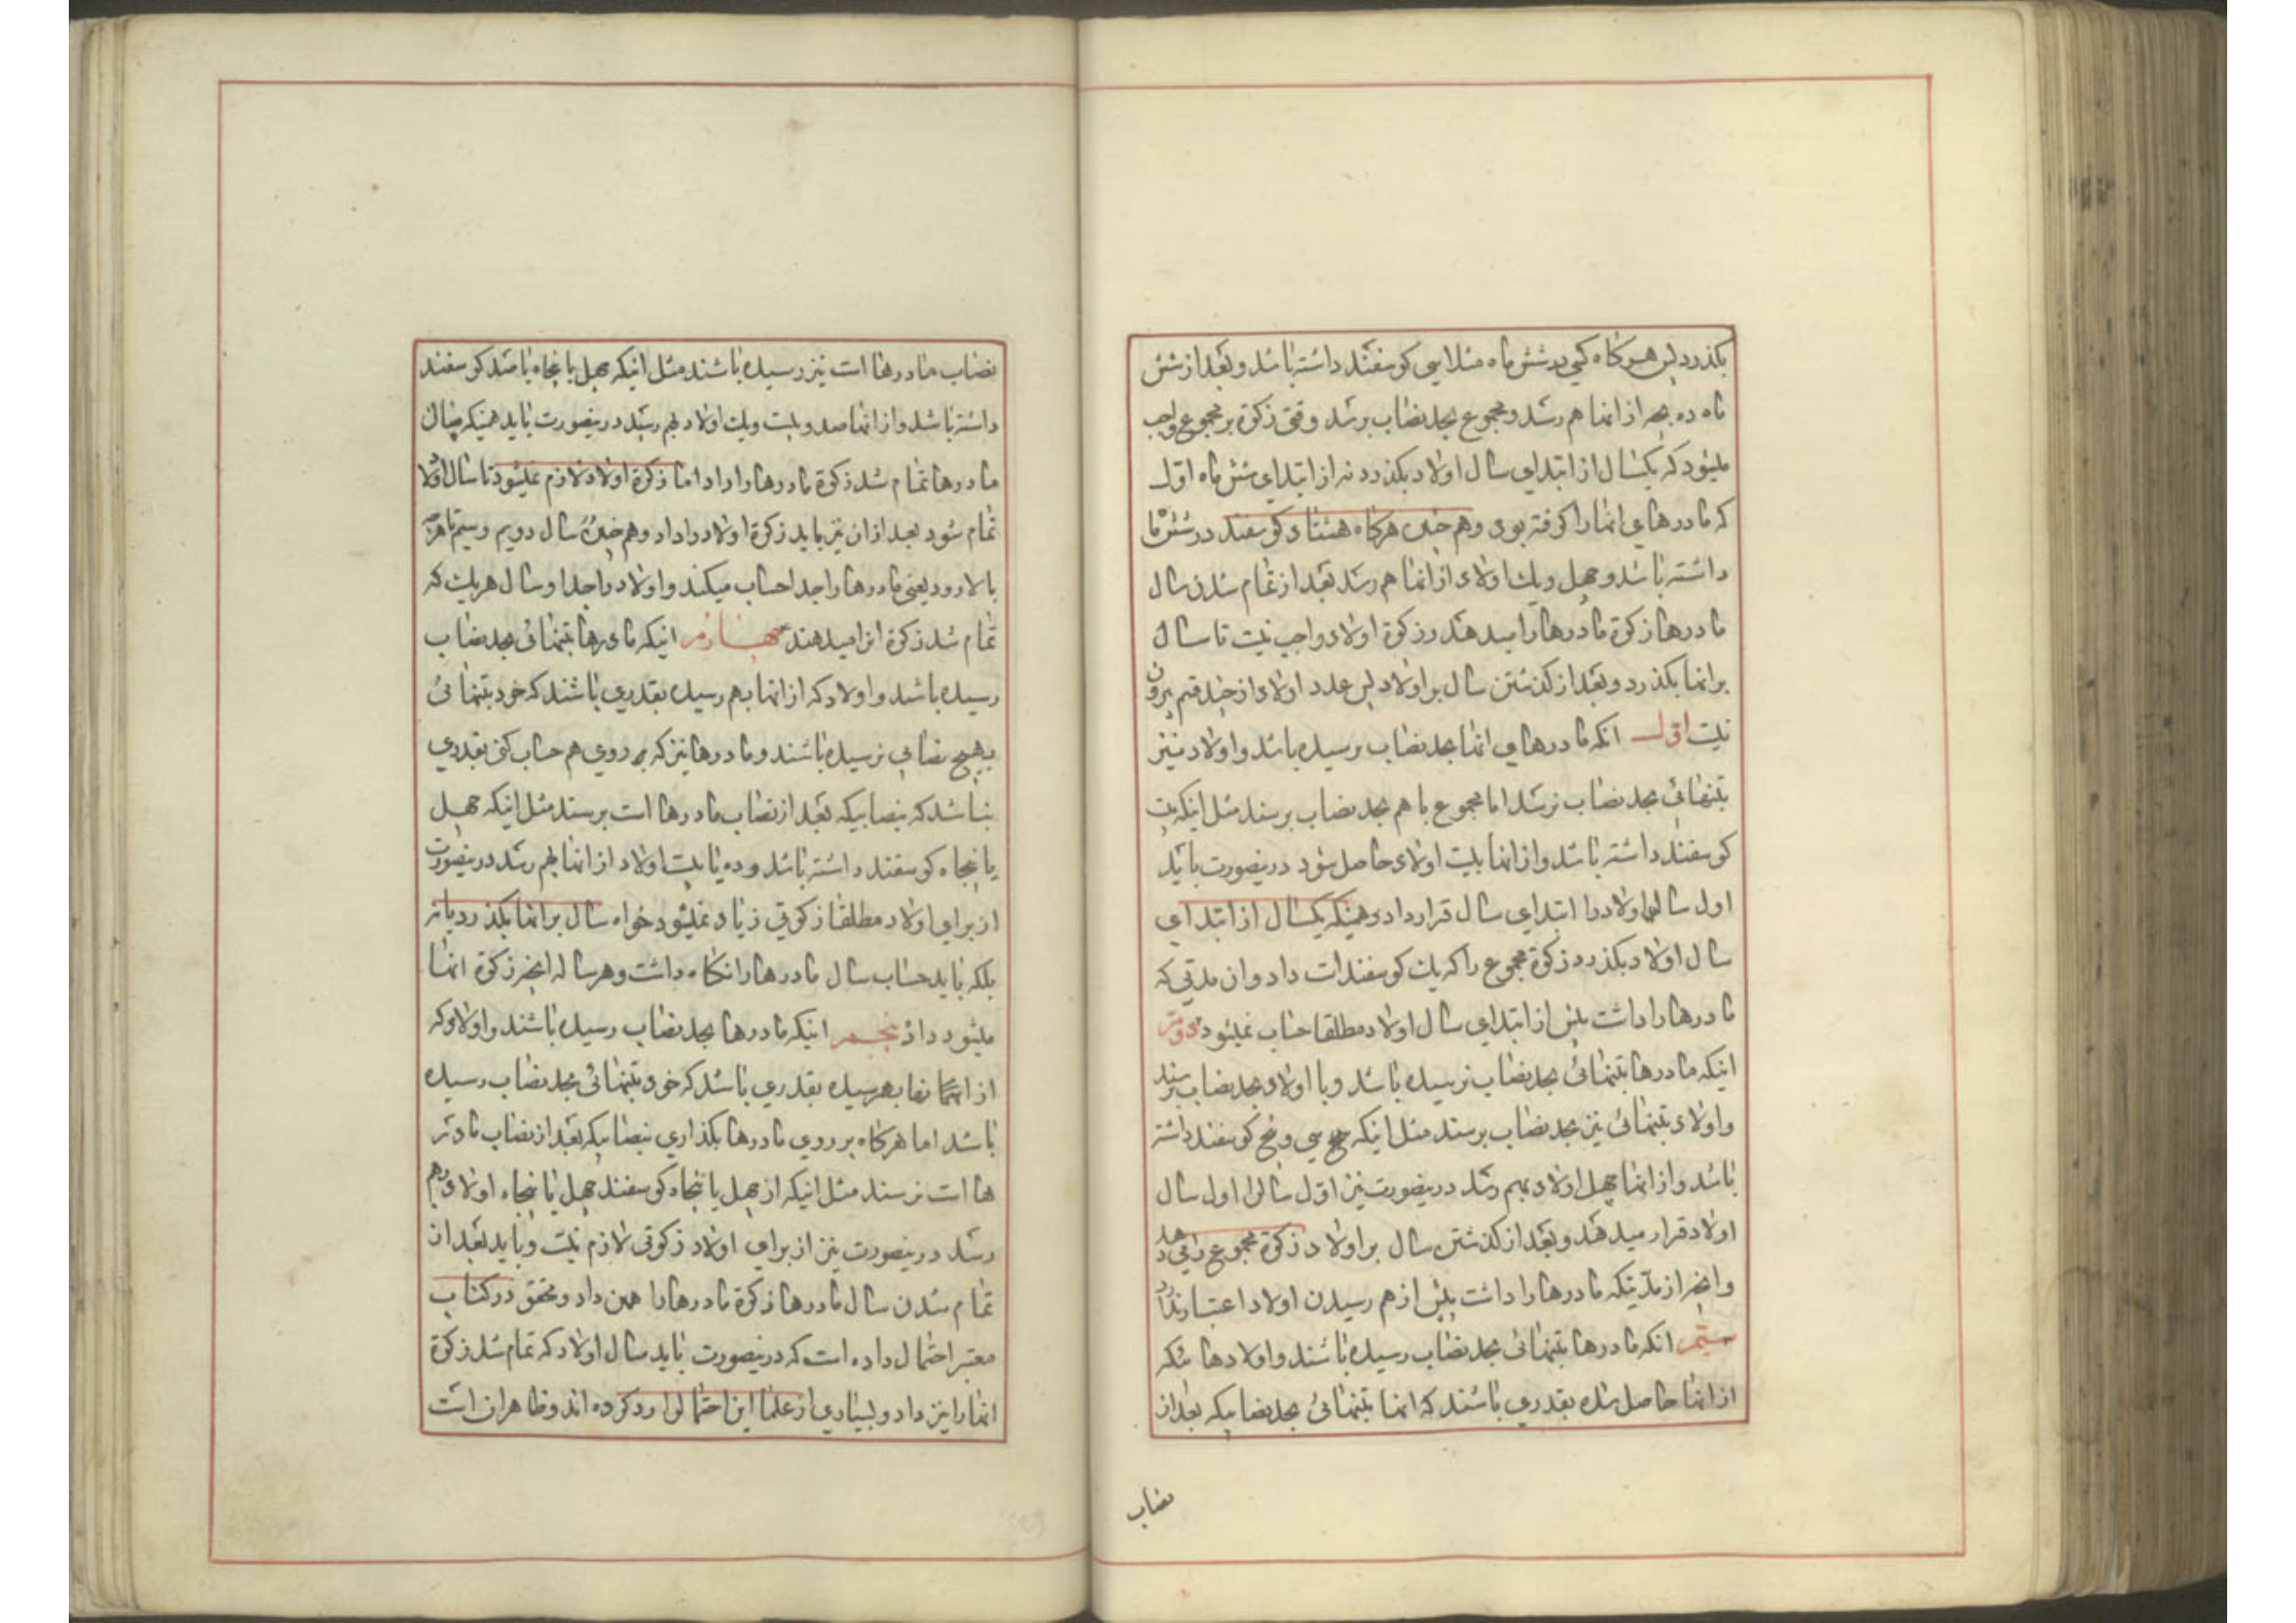 بکذرد پس هرکاه کسی در شش ماه مثلا سی کوسفند داشته باشد و بعد از شش
ماه ده بچه از انها بهم رسد و مجموع بحد نصاب برسد وقتی زکوة بر مجموع واجب
میشود که یکسال از ابتدای سال اولاد بکذرد نه از ابتدای شش ماه اول
که مادرهای انها را کرفته بودی و هم چنین هرکاه هشتاد کوسفند در شش ماه
داشته باشد و چهل و یک اولاد از انها بهم رسد بعد از تمام شدن سال
مادرها زکوة مادرها را میدهند و زکوة اولاد واجب نیست تا سال
بر انها بکذرد و بعد از کذشتن سال بر اولاد پس عدد اولاد از چند قسم بیرون
نیست اول انکه مادرهای انها بحد نصاب نرسیده باشد و اولاد نیز
بتنهائی بحد نصاب نرسد اما مجموع با هم بحد نصاب برسند مثل اینکه بیست
کوسفند داشته باشد و از انها بیست اولاد حاصل شود درینصورت باید
اول سال اولاد را ابتدای سال قرار داد و همینکه یکسال از ابتدای
سال اولاد بکذرد زکوة مجموع را که یک کوسفند است داد و ان مدتی که
مادرها را داشت پیش از ابتدای سال اولاد مطلقا حساب نمیشود دویم
اینکه مادرها بتنهائی بحد نصاب نرسیده باشد و با اولاد بحد نصاب برسند
و اولاد بتنهائی نیز بحد نصاب برسند مثل اینکه سی و پنج کوسفند داشته
باشد و از انها چهل اولاد بهم رسد درینصورت نیز اول سال را اول سال
اولاد قرار میدهند و بعد از کذشتن سال بر اولاد زکوة مجموع را میدهد
و انچه از مدتیکه مادرها را داشت پیش از بهم رسیدن اولاد اعتبار ندارد
سیم انکه مادرها بتنهائی بحد نصاب رسیده باشند و اولادها ئیکه
از انها حاصل شده بقدری باشند که انها بتنهائی بحد نصابیکه بعد از
نصاب
نصاب مادرها است نیز رسیده باشند مثل اینکه چهل یا پنجاه یا صد کوسفند
داشته باشد و از انها صد و بیست و یک اولاد بهم رسد درینصورت باید همینکه سال
مادرها تمام شد زکوة مادرها را داد اما زکوة اولاد لازم نمیشود تا سال اولاد
تمام شود بعد از ان نیز باید زکوة اولاد را داد و هم چنین سال دویم و سیم تا هرچه
بالا رود یعنی مادرها را جدا حساب میکند و اولاد را جدا و سال هریک که
تمام شد زکوة انرا میدهند چهارم اینکه مادرها بتنهائی بحد نصاب
رسیده باشد و اولاد که از انها بهم رسیده بقدری باشند که خود بتنهائی
بهیچ نصابی نرسیده باشند و مادرها نیز که بر روی هم حساب کنی بقدری
نباشد که بنصابیکه بعد از نصاب مادرها است برسند مثل اینکه چهل
یا پنجاه کوسفند داشته باشد و ده یا بیست اولاد از انها بهم رسد درینصورت
از برای اولاد مطلقا زکوتی زیاد نمیشود خواه سال بر انها بکذرد یا نه
بلکه باید حساب سال مادرها را نکاه داشت و هر ساله انچه زکوة انها
میشود داد پنجم اینکه مادرها بحد نصاب رسیده باشند و اولاد که
از انها بهم رسیده بقدری باشد که خود بتنهائی بحد نصاب رسیده
باشد اما هرکاه بر روی مادرها بکذاری بنصابیکه بعد از نصاب مادر
ها است نرسند مثل اینکه از چهل یا پنجاه کوسفند چهل یا پنجاه اولاد بهم
رسد درینصورت نیز از برای اولاد زکوتی لازم نیست و باید بعد از
تمام شدن سال مادرها زکوة مادرها را همین داد و محقق در کتاب
معتبر احتمال داده است که درینصورت باید سال اولاد که تمام شد زکوة
انها را نیز داد و بسیاری از علما این احتمال را رد کرده اند و ظاهر ان است